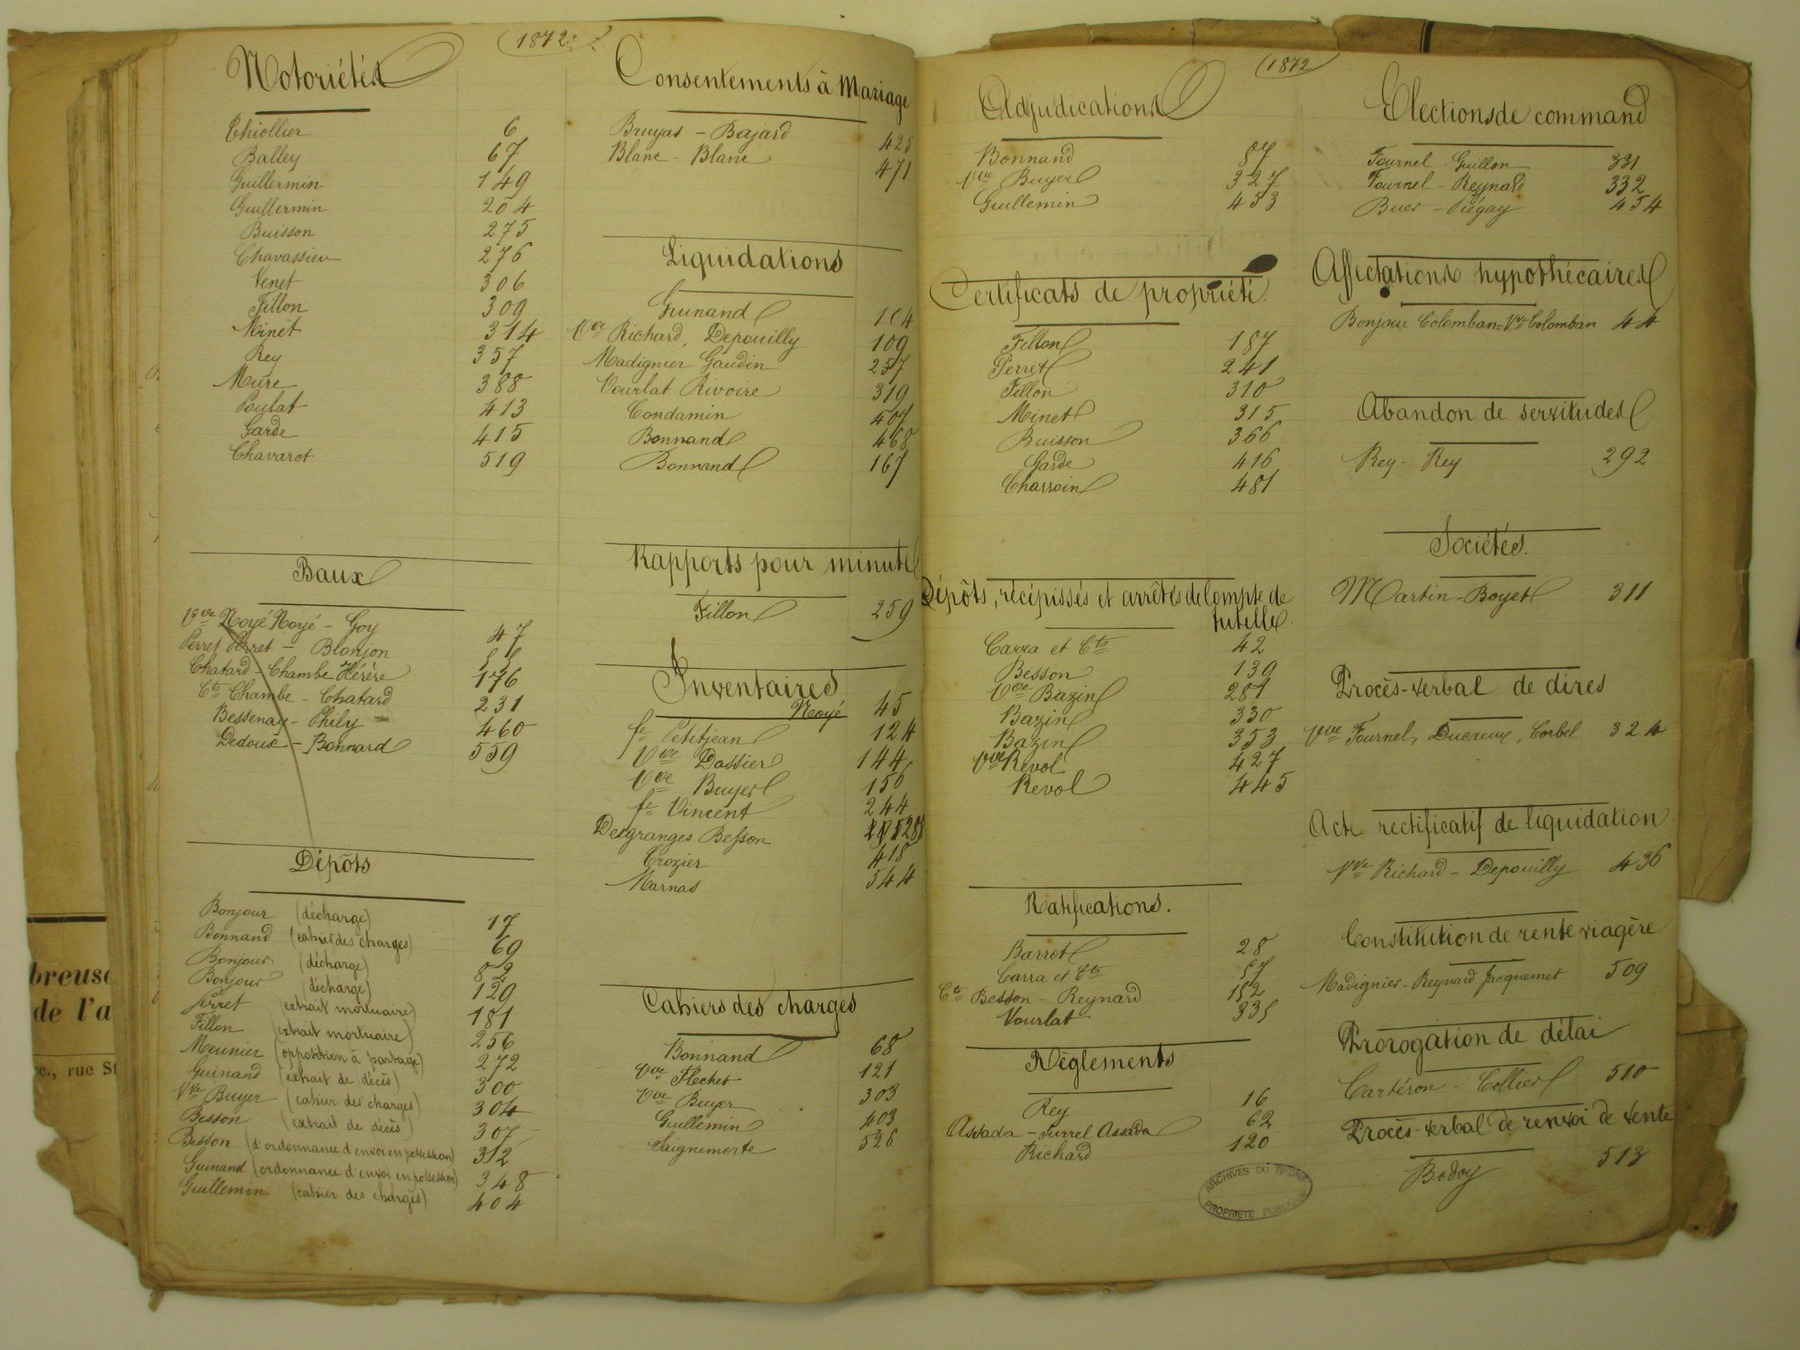 1872
Notoriétés
Thiollier 6
Balley 67
Guillermin 149
Guillermin 204
Buisson 275
Chavassieu 276
Venet 306
Fillon 309
Minet 314
Rey 357
Mure 388
Poulat 413
Garde 415
Chavarot 519
Baux
Vve Noyé Noyé - Goy 47
Perret Perret - Blanjon
Chatard - Chambe Hérère 176
Cts Chambe - Chatard 231
Bessenay - Phily 460
Dedoux - Bonnard 559
Dépôts
Bonjour (décharge) 17
Bonnand (cahier des charges) 69
Bonjour (décharge) 82
Bonjour (décharge) 129
Perret (extrait mortuaire) 181
Fillon (extrait mortuaire) 256
Meunier (opposition à partage) 272
Guinand (extrait de décès) 300
Vve Buyer (cahier des charges) 304
Besson (extrait de décès) 307
Besson (d'ordonnance d'envoi en possession) 312
Guinand (ordonnance d'envoi en possession) 348
Guillemin (cahier des charges) 404
Consentements à Mariage
Bruyas - Bajard 425
Blanc - Blanc 471
Liquidations
Guinand 104
Vve Richard, Depouilly 109
Madignier Gaudin 257
Vourlat Rivoire 319
Condamin 407
Bonnand 468
Bonnand 167
Rapports pour minute
Fillon 259
Inventaires
Noyé 45
fe Petitjean 124
Vve Dossier 144
Vve Buyer 156
fe Vincent 244
Desgranges Besson 528
Crozier 418
Marnas 544
Cahiers des charges
Bonnand 68
Vve Flechet 121
Vve Buyer 303
Guillemin 403
Saignemorte 526
1872
Adjudications
Bonnand 87
Vve Buyer 327
Guillemin 453
Certificats de propriété
Fillon 187
Perret 241
Fillon 310
Minet 315
Buisson 366
Garde 416
Charroin 481
Dépôts, récépissés et arrêtés de Compte de
tutelle.
Carra et Cts 42
Besson 139
Vve Bazin 281
Bazin 330
Bazin 353
Vve Revol 427
Revol 445
Ratifications.
Barrot 28
Carra et Cts 57
Cts Besson - Reynard 152
Vourlat 335
Règlements
Rey 16
Assada - Surrel Assada 62
Richard 120
ARCHIVES DU RHONE
PROPRIETE PUBLIQUE
Elections de command
Fournel - Guillon 331
Fournel - Reynard 332
Buer - Piégay 454
Affectations hypothécaires
Bonjour Colomban = Vve Colomban 44
Abandon de servitudes
Rey - Rey 292
Sociétés.
Martin - Boyet 311
Procès-verbal de dires
Vve Fournel, Ducreux, Corbel 324
Acte rectificatif de liquidation.
Vve Richard - Depouilly 436
Constitution de rente viagère
Madignier - Reynard Jacquemet 509
Prorogation de délai
Cartéron - Collier 510
Procès-verbal de renvoi de vente
Bodoy 513
breuse
de l'a
c., rue St